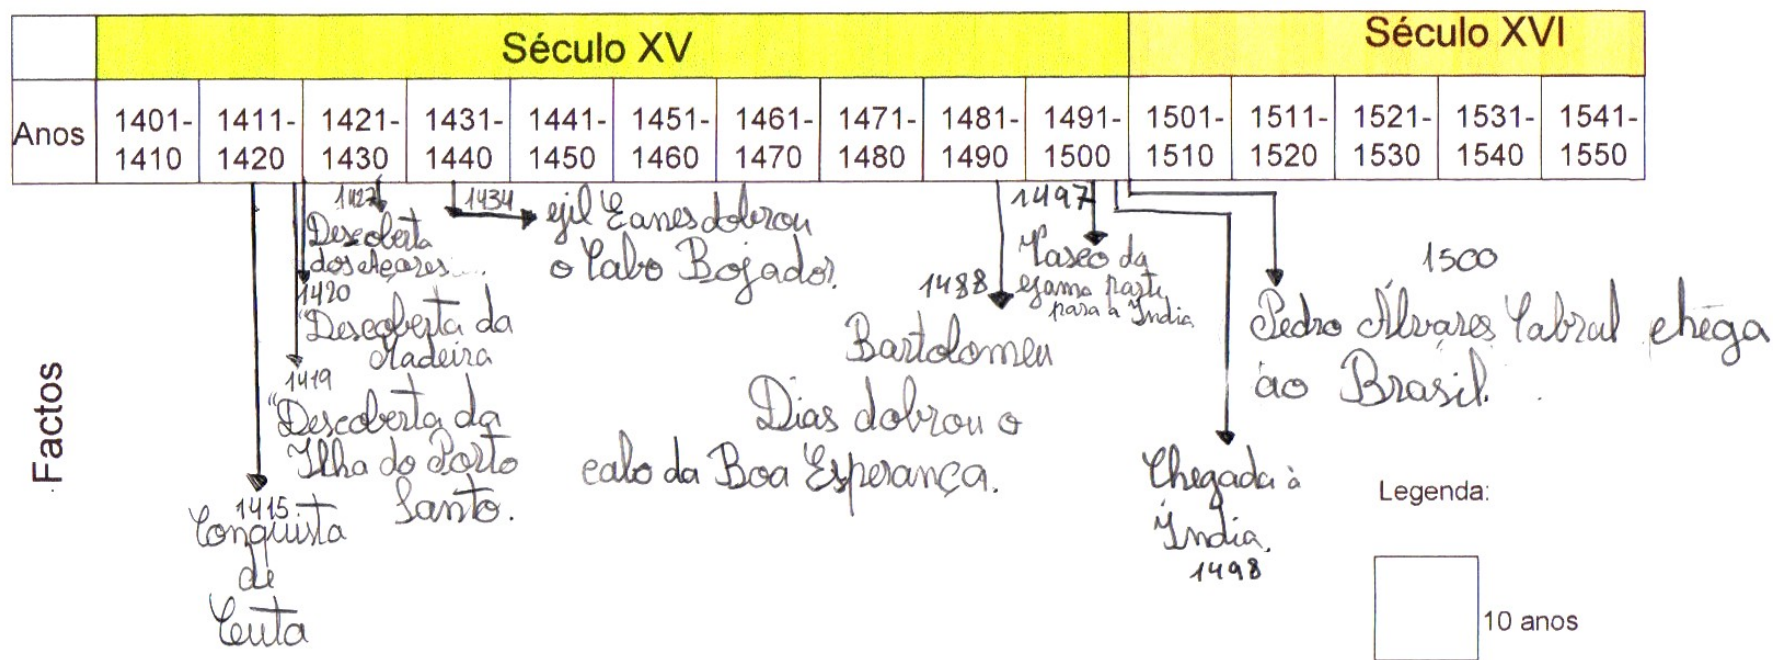 Século XV Século XVI
Anos 1401-1410 1411-1420 1421-1430 1431-1440 1441-1450 1451-1460 1461-1470 1471-1480 1481-1490 1491-1500 1501-1510 1511-1520 1521-1530 1531-1540 1541-1550
Factos
1427
Descoberta
dos Açores
1434
Gil Eanes dobrou
o Cabo Bojador.
1420
"Descoberta da
Madeira
1419
"Descoberta da
Ilha do Porto
Santo.
1415
Conquista
de
Ceuta
1488
Bartolomeu
Dias dobrou o
cabo da Boa Esperança.
1497
Vasco da
Gama parte
para a Índia
Chegada à
Índia.
1498
1500
Pedro Álvares Cabral chega
ao Brasil.
Legenda:
10 anos